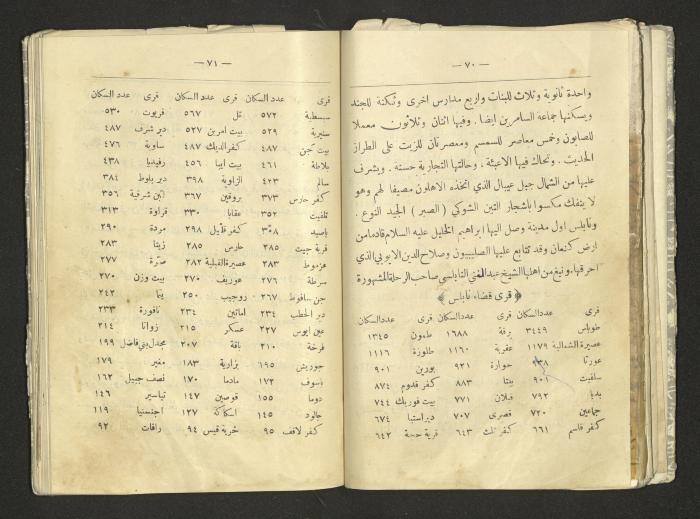 — ٧٠ —
واحدة ثانوية وثلاث للبنات واربع مدارس اخرى وثكنة للجند
ويسكنها جماعة السامريين ايضا . وفيها اثنان وثلاثون معملا
للصابون وخمس معاصر للسمسم ومعصرتان للزيت على الطراز
الحديث . وتحاك فيها الاعبئة . وحالتها التجارية حسنة . ويشرف
عليها من الشمال جبل عيبال الذي اتخذه الاهلون مصيفا لهم وهو
لا ينفك مكسوا باشجار التين الشوكي ( الصبر ) الجيد النوع .
ونابلس اول مدينة وصل اليها ابراهيم الخليل عليه السلام قادما من
ارض كنعان وقد تتابع عليها الصليبيون وصلاح الدين الايوبي الذي
احرقها . ونبغ من اهلها الشيخ عبد الغني النابلسي صاحب الرحلة المشهورة
﴿ قرى قضاء نابلس ﴾
قرى عدد السكان قرى عدد السكان قرى عدد السكان
طوباس ٣٤٤٩ برقة ١٦٨٨ طمون ١٣٤٥
عصيرة الشمالية ١١٧٩ عقربة ١١٦٠ طلوزة ١١١٦
عورتا ٩٣٨ حوارة ٩٢١ بورين ٩٠١
سلفيت ٩٠١ بيتا ٨٨٣ كفر قدوم ٨٧٤
بديا ٧٩٢ قبلان ٧٧١ بيت فوريك ٧٤٤
جماعين ٧٢٠ قصرى ٧٠٧ دير استيا ٦٧٤
كفر قاسم ٦٦١ كفر ثلث ٦٤٣ قرية حجة ٦٤٢
— ٧١ —
قرى عدد السكان قرى عدد السكان قرى عدد السكان
سبسطية ٥٧٢ تل ٥٦٧ فريوت ٥٣٠
سنيرية ٥٢٩ بيت امرين ٥٢٧ دير شرف ٤٨٧
بيت دجن ٤٨٧ كفر الديك ٤٨٧ ساوية ٤٧٦
بلاطة ٤٦١ بيت ايبا ٤٥٦ رفيديا ٤٣٨
سالم ٤٢٣ الزاوية ٣٩٨ دير بلوط ٣٨٤
كفر حارس ٣٧٣ بروقين ٣٦٧ لبن شرقية ٣٥٦
تلفيت ٣٥٢ عقابا ٣٣٠ قراوة ٣١٣
ياصيد ٣٠٨ كفر قليل ٢٩٨ مردة ٢٩٠
قرية جيت ٢٨٥ حارس ٢٨٥ زيتا ٢٨٣
عزموط ٢٨٣ عصيرة القبلية ٢٨٢ صرة ٢٧٧
سرطة ٢٧٦ عوريف ٢٧٠ بيت وزن ٢٧٠
جن صافوط ٢٦٧ روجيب ٢٥٠ يتما ٢٤٢
دير الحطب ٢٣٤ اماتين ٢٣٤ ناقورة ٢٣٣
عين ابوس ٢٢٧ عسكر ٢١٥ زواتا ٢١٤
فرخة ٢١٠ باقة ٢٠٧ مجدل بني فاضل ١٩٩
جوريش ١٩٥ بزارية ١٨٣ مغير ١٧٩
ياسوف ١٧٢ مادما ١٧٠ نصف جبيل ١٦٢
دوما ١٥٥ قوصين ١٤٧ تياسير ١٤٦
جالود ١٤٥ اسكاكة ١٢٧ اجنسنيا ١١٩
كفر لاقف ٩٥ خربة قيس ٩٤ رافات ٩٢